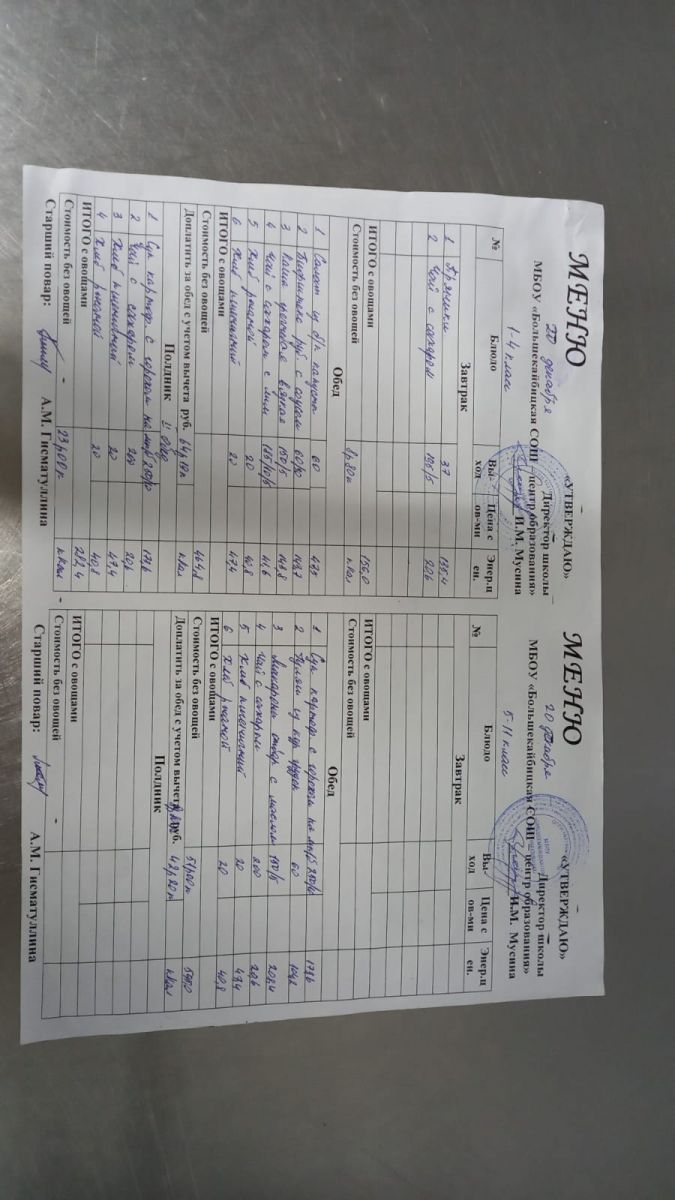 МЕНЮ
«УТВЕРЖДАЮ»
Директор школы
МБОУ «Большекайбицкая СОШ – центр образования»
И.М. Мусина
20 декабря
1-4 класс
№ Блюдо Вы-ход Цена с ов-ми Энер.ц ен.
Завтрак
1 Пряники 37 135,4
2 Чай с сахаром 195/5 20,6
ИТОГО с овощами 156,0
Стоимость без овощей ккал
Обед
1 Салат из б/к капусты 60 47,5
2 Биточки руб. с соусом
3 Каша гречневая вязкая 150/5
4 Чай с сахаром с лим 185/10/5 41,6
5 Хлеб ржаной 20 40,8
6 Хлеб пшеничный 20 47,4
ИТОГО с овощами
Стоимость без овощей 464,8
Доплатить за обед с учетом вычета руб. 64р19к ккал
Полдник
1 Суп картоф. с горохом на м/б 250/10 173,6
2 Чай с сахаром 200 20,6
3 Хлеб пшеничный 20 47,4
4 Хлеб ржаной 20 40,8
ИТОГО с овощами 282,4
Стоимость без овощей - 23р00к ккал
Старший повар: А.М. Гисматуллина
МЕНЮ
«УТВЕРЖДАЮ»
Директор школы
МБОУ «Большекайбицкая СОШ – центр образования»
И.М. Мусина
20 декабря
5-11 класс
№ Блюдо Вы-ход Цена с ов-ми Энер.ц ен.
Завтрак
ИТОГО с овощами
Стоимость без овощей
Обед
1 Суп картоф. с горохом на м/б 250/10 173,6
2 Гуляш из кур. грудки 60
3 Макароны отвар. с маслом 150/5
4 Чай с сахаром 200 20,6
5 Хлеб пшеничный 20 47,4
6 Хлеб ржаной 20 40,8
ИТОГО с овощами
Стоимость без овощей 51р00к
Доплатить за обед с учетом вычета руб. 42р20к ккал
Полдник
ИТОГО с овощами
Стоимость без овощей -
Старший повар: А.М. Гисматуллина